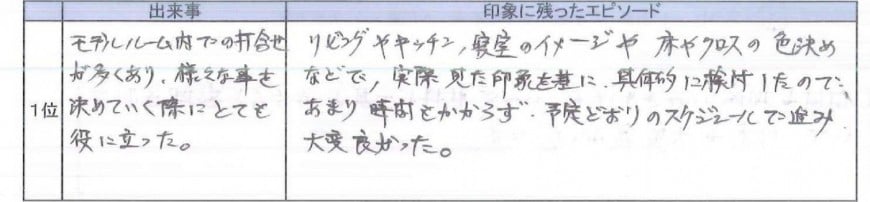 出来事
印象に残ったエピソード
1位
モデルルーム内での打合せ
が多くあり、様々な事を
決めていく際にとても
役に立った。
リビングやキッチン,寝室のイメージや床やクロスの色決め
などで,実際見た印象を基に、具体的に検討したので、
あまり時間もかからず、予定どおりのスケジュールで進み
大変良かった。